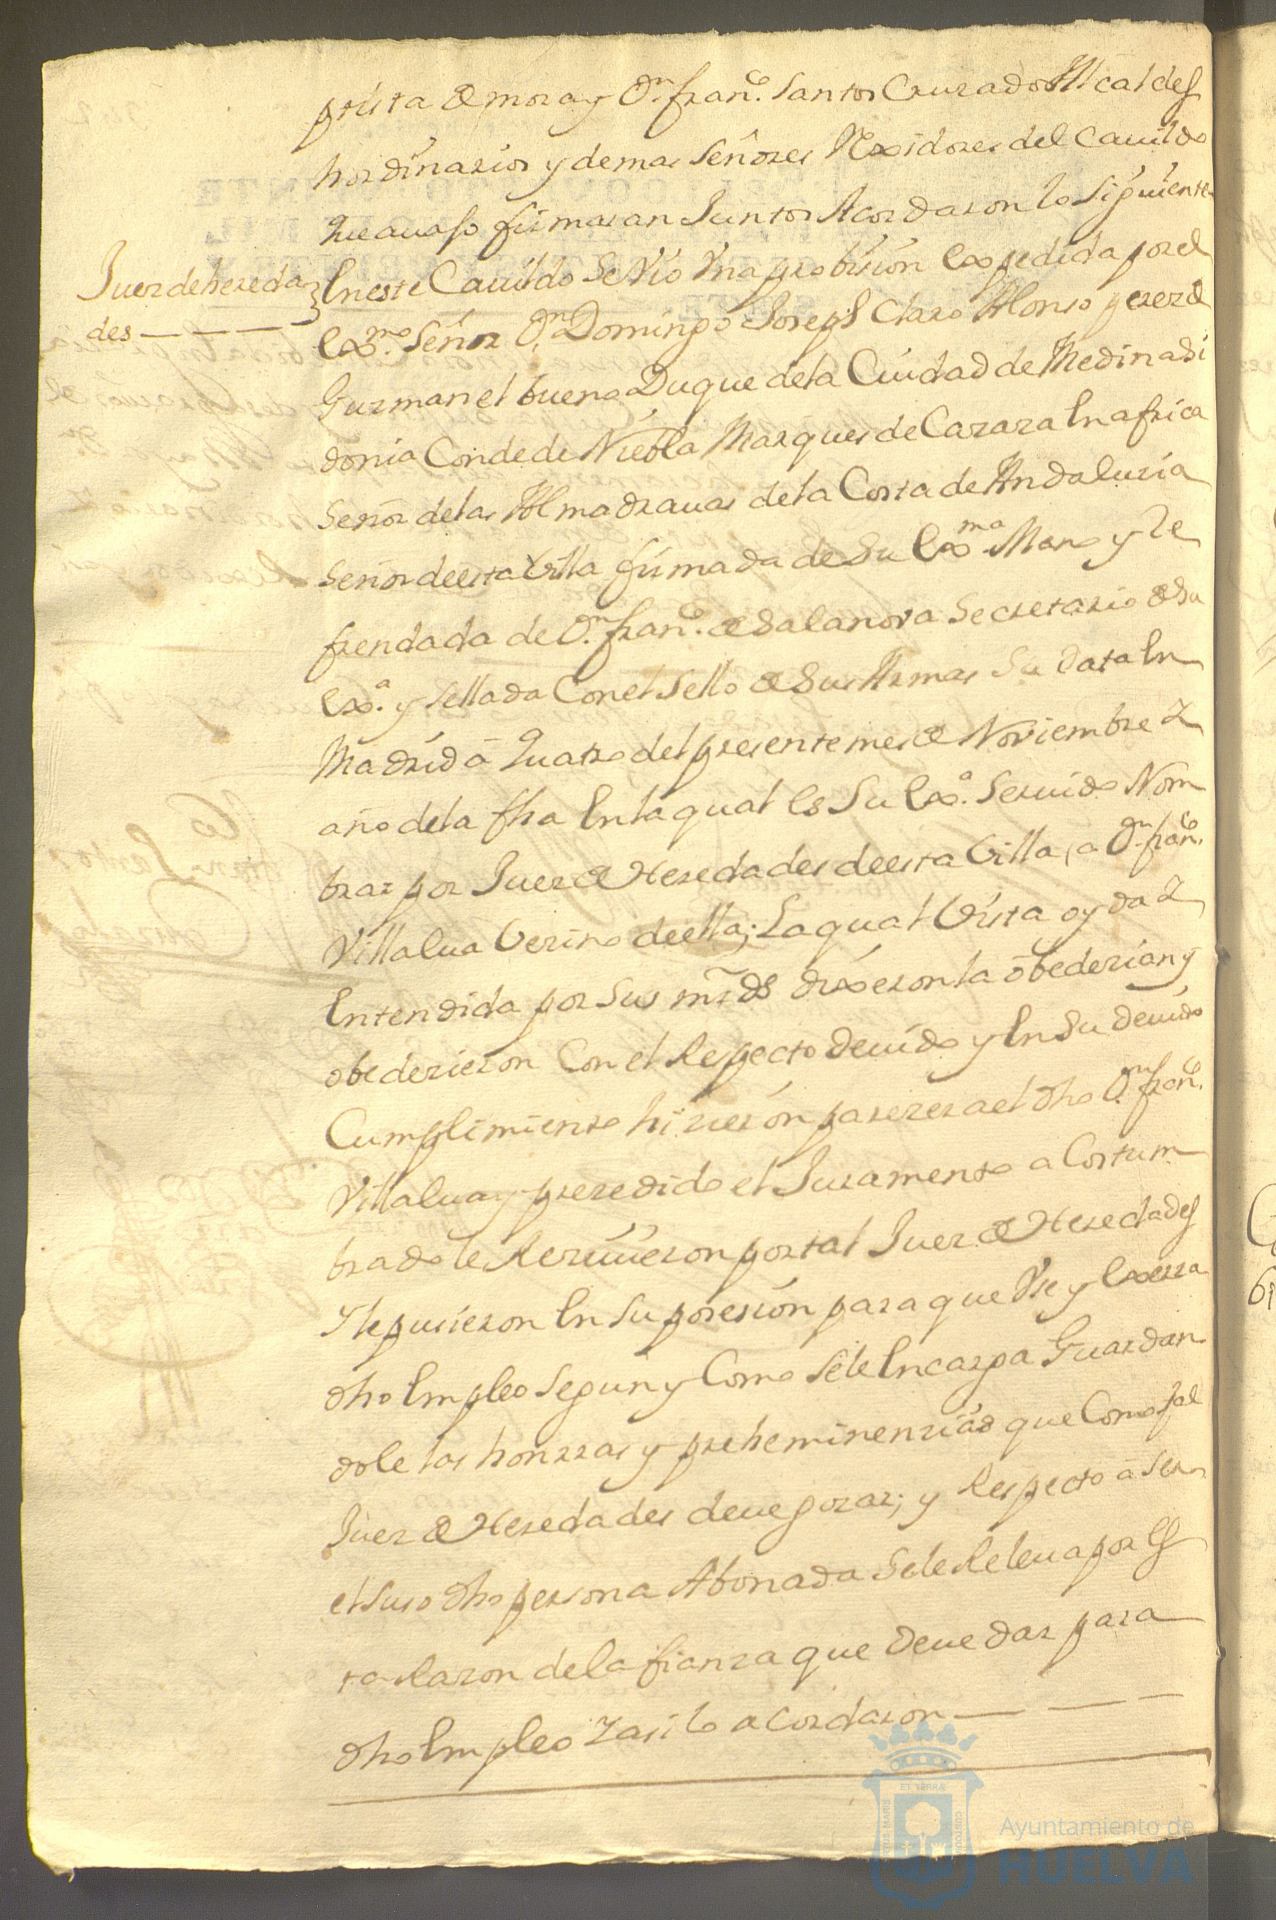 ptista de mora y Dn. franco. Santos Cruzado Alcaldes
hordinarios y demas Señores Rexidores del Cauildo
que auaxo firmaran Juntos Acordaron lo Siguiente
Juez de hereda
des
En este Cauildo Se Vio Vna prouision Expedida por el
Exmo. Señor Dn. Domingo Joseph Claro Alonso perez de
Guzman el bueno Duque de la Ciudad de Medina Si
donia Conde de Niebla Marques de Cazaza En africa
Señor de las Almadrauas de la Costa de Andaluzia
Señor de esta Villa firmada de Su Exma. Mano y Re
frendada de Dn. franco. de Salanova Secretario de Su
Exa. y Sellada Con el Sello de Sus Armas Su data En
Madrid â quatro del presente mes de Noviembre Y
año de la fha En la qual Es Su Exa. Seruido Nom
brar por Juez de Heredades de esta Villa, a Dn. franco.
Villalua Vezino de ella; La qual Vista oyda Y
Entendida por Sus mrds dixeron la obedezian y
obedezieron Con el Respecto deuido y En Su deuido
Cumplimiento hizieron parezer a el dho Dn. franco.
Villalua y prezedido el Juramento a Costum
brado le Reziuieron por tal Juez de Heredades
Y le pusieron En Su posesion para que Vse y Exerza
dho Empleo Segun y Como Se le Encarga Guardan
dole las honrras y preheminenzias que Como tal
Juez de Heredades deue gozar; y Respecto â Ser
el Suso dho persona Abonada Se le Releua por Es
ta Razon de la fianza que deue dar para
dho Empleo Y asi lo acordaron
ET TERRÆ
Ayuntamiento de
HUELVA